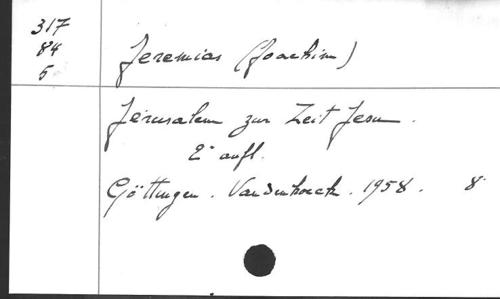 317
84
5
Jeremias (Joachim)
Jérusalem zur Zeit Jesu.
2e aufl.
Göttingen. Vandenhoeck. 1958. 8°